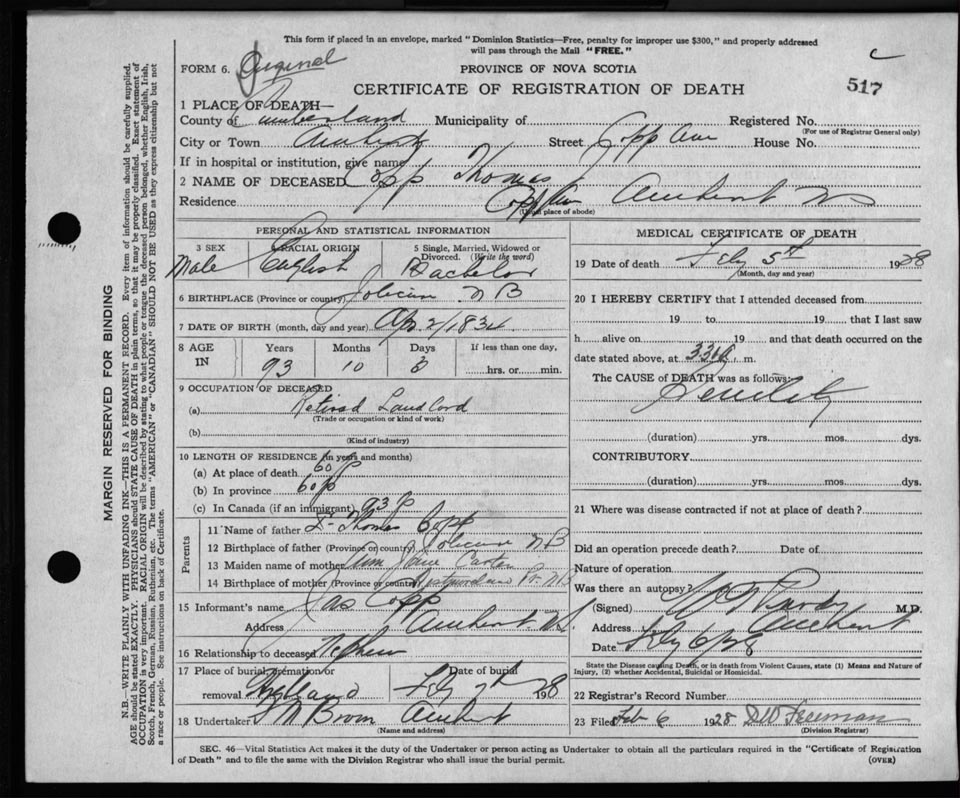 This form if placed in an envelope, marked "Dominion Statistics—Free, penalty for improper use $300," and properly addressed
will pass through the Mail "FREE."
C
FORM 6. Original
PROVINCE OF NOVA SCOTIA
CERTIFICATE OF REGISTRATION OF DEATH
517
1 PLACE OF DEATH—
County of Cumberland Municipality of Registered No.
(For use of Registrar General only)
City or Town Amherst Street Copp Ave House No.
If in hospital or institution, give name
2 NAME OF DECEASED Copp Thomas
Residence Copp Ave Amherst N S
(Usual place of abode)
PERSONAL AND STATISTICAL INFORMATION
3 SEX 4 RACIAL ORIGIN 5 Single, Married, Widowed or Divorced. (Write the word)
Male English Bachelor
6 BIRTHPLACE (Province or country) Jolicure N B
7 DATE OF BIRTH (month, day and year) Apr 2/1834
8 AGE IN Years Months Days If less than one day,
93 10 3 hrs. or min.
9 OCCUPATION OF DECEASED
(a) Retired Landlord
(Trade or occupation or kind of work)
(b)
(Kind of industry)
10 LENGTH OF RESIDENCE (in years and months)
(a) At place of death 60
(b) In province 60
(c) In Canada (if an immigrant) 93
Parents
11 Name of father Thomas Copp
12 Birthplace of father (Province or country) Jolicure N B
13 Maiden name of mother Jane
14 Birthplace of mother (Province or country)
15 Informant's name Jas Copp
Address Amherst N S
16 Relationship to deceased Nephew
17 Place of burial, cremation or removal Date of burial
Feby 7th 1928
18 Undertaker Amherst
(Name and address)
MEDICAL CERTIFICATE OF DEATH
19 Date of death Feby 5th 1928
(Month, day and year)
20 I HEREBY CERTIFY that I attended deceased from
19 to 19 that I last saw
h alive on 19 and that death occurred on the
date stated above, at m.
The CAUSE of DEATH was as follows:
Senility
(duration) yrs. mos. dys.
CONTRIBUTORY
(duration) yrs. mos. dys.
21 Where was disease contracted if not at place of death?
Did an operation precede death? Date of
Nature of operation
Was there an autopsy?
(Signed) Purdy M.D.
Address Amherst
Date Feby 6/28
State the Disease causing Death, or in death from Violent Causes, state (1) Means and Nature of
Injury, (2) whether Accidental, Suicidal or Homicidal.
22 Registrar's Record Number
23 Filed Feb 6 1928 Freeman
(Division Registrar)
SEC. 46—Vital Statistics Act makes it the duty of the Undertaker or person acting as Undertaker to obtain all the particulars required in the "Certificate of Registration
of Death" and to file the same with the Division Registrar who shall issue the burial permit.
(OVER)
MARGIN RESERVED FOR BINDING
N.B.—WRITE PLAINLY WITH UNFADING INK—THIS IS A PERMANENT RECORD. Every item of information should be carefully supplied.
AGE should be stated EXACTLY. PHYSICIANS should STATE CAUSE OF DEATH in plain terms, so that it may be properly classified. Exact statement of
OCCUPATION is very important. RACIAL ORIGIN will be described by stating to what people or tongue the deceased person belonged, whether English, Irish,
Scotch, French, German, Russian, Ruthenian, etc. The terms "AMERICAN" or "CANADIAN" SHOULD NOT BE USED as they express citizenship but not
a race or people. See instructions on back of Certificate.